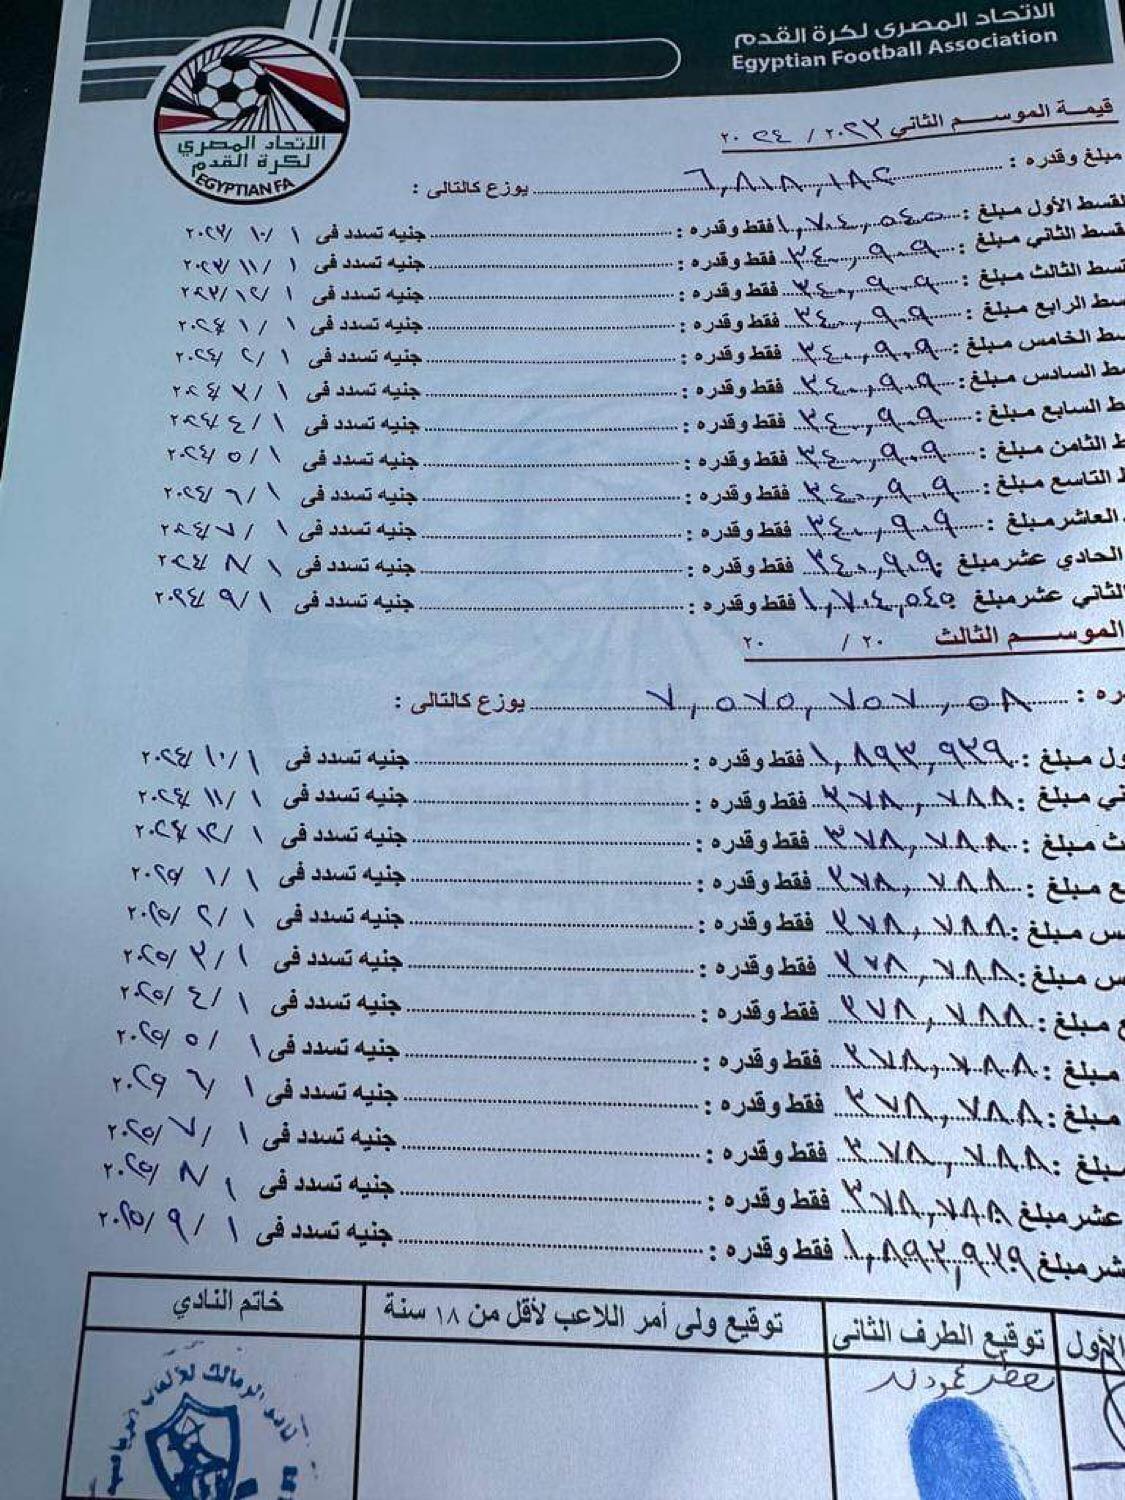 الاتحاد المصرى لكرة القدم
Egyptian Football Association
الاتحاد المصري
لكرة القدم
EGYPTIAN FA
قيمة الموسم الثاني ٢٠٢٣ / ٢٠٢٤
مبلغ وقدره : ٦,٨١٨,١٨٢ يوزع كالتالى :
لقسط الأول مبلغ : ١,٧٠٤,٥٤٥ فقط وقدره : جنيه تسدد فى ١ /١٠ /٢٠٢٣
قسط الثاني مبلغ : ٣٤٠,٩٠٩ فقط وقدره : جنيه تسدد فى ١ /١١ /٢٠٢٣
قسط الثالث مبلغ : ٣٤٠,٩٠٩ فقط وقدره : جنيه تسدد فى ١ /١٢ /٢٠٢٣
سط الرابع مبلغ : ٣٤٠,٩٠٩ فقط وقدره : جنيه تسدد فى ١ /١ /٢٠٢٤
سط الخامس مبلغ : ٣٤٠,٩٠٩ فقط وقدره : جنيه تسدد فى ١ /٢ /٢٠٢٤
سط السادس مبلغ : ٣٤٠,٩٠٩ فقط وقدره : جنيه تسدد فى ١ /٣ /٢٠٢٤
ط السابع مبلغ : ٣٤٠,٩٠٩ فقط وقدره : جنيه تسدد فى ١ /٤ /٢٠٢٤
ط الثامن مبلغ : ٣٤٠,٩٠٩ فقط وقدره : جنيه تسدد فى ١ /٥ /٢٠٢٤
ط التاسع مبلغ : ٣٤٠,٩٠٩ فقط وقدره : جنيه تسدد فى ١ /٦ /٢٠٢٤
العاشر مبلغ : ٣٤٠,٩٠٩ فقط وقدره : جنيه تسدد فى ١ /٧ /٢٠٢٤
الحادي عشر مبلغ : ٣٤٠,٩٠٩ فقط وقدره : جنيه تسدد فى ١ /٨ /٢٠٢٤
الثاني عشر مبلغ : ١,٧٠٤,٥٤٥ فقط وقدره : جنيه تسدد فى ١ /٩ /٢٠٢٤
الموسم الثالث ٢٠ / ٢٠
ره : ٧,٥٧٥,٧٥٧,٥٨ يوزع كالتالى :
ول مبلغ : ١,٨٩٣,٩٣٩ فقط وقدره : جنيه تسدد فى ١ /١٠ /٢٠٢٤
ني مبلغ : ٣٧٨,٧٨٨ فقط وقدره : جنيه تسدد فى ١ /١١ /٢٠٢٤
ث مبلغ : ٣٧٨,٧٨٨ فقط وقدره : جنيه تسدد فى ١ /١٢ /٢٠٢٤
ع مبلغ : ٣٧٨,٧٨٨ فقط وقدره : جنيه تسدد فى ١ /١ /٢٠٢٥
س مبلغ : ٣٧٨,٧٨٨ فقط وقدره : جنيه تسدد فى ١ /٢ /٢٠٢٥
س مبلغ : ٣٧٨,٧٨٨ فقط وقدره : جنيه تسدد فى ١ /٣ /٢٠٢٥
ع مبلغ : ٣٧٨,٧٨٨ فقط وقدره : جنيه تسدد فى ١ /٤ /٢٠٢٥
مبلغ : ٣٧٨,٧٨٨ فقط وقدره : جنيه تسدد فى ١ /٥ /٢٠٢٥
مبلغ : ٣٧٨,٧٨٨ فقط وقدره : جنيه تسدد فى ١ ٦/ ٢٠٢٥
مبلغ : ٣٧٨,٧٨٨ فقط وقدره : جنيه تسدد فى ١ /٧ /٢٠٢٥
عشر مبلغ ٣٧٨,٧٨٨ فقط وقدره : جنيه تسدد فى ١ ٨/ ٢٠٢٥
شر مبلغ ١,٨٩٣,٩٣٩ فقط وقدره : جنيه تسدد فى ١ /٩ /٢٠٢٥
الأول توقيع الطرف الثانى توقيع ولى أمر اللاعب لأقل من ١٨ سنة خاتم النادي
نادى الزمالك للألعاب الرياضية